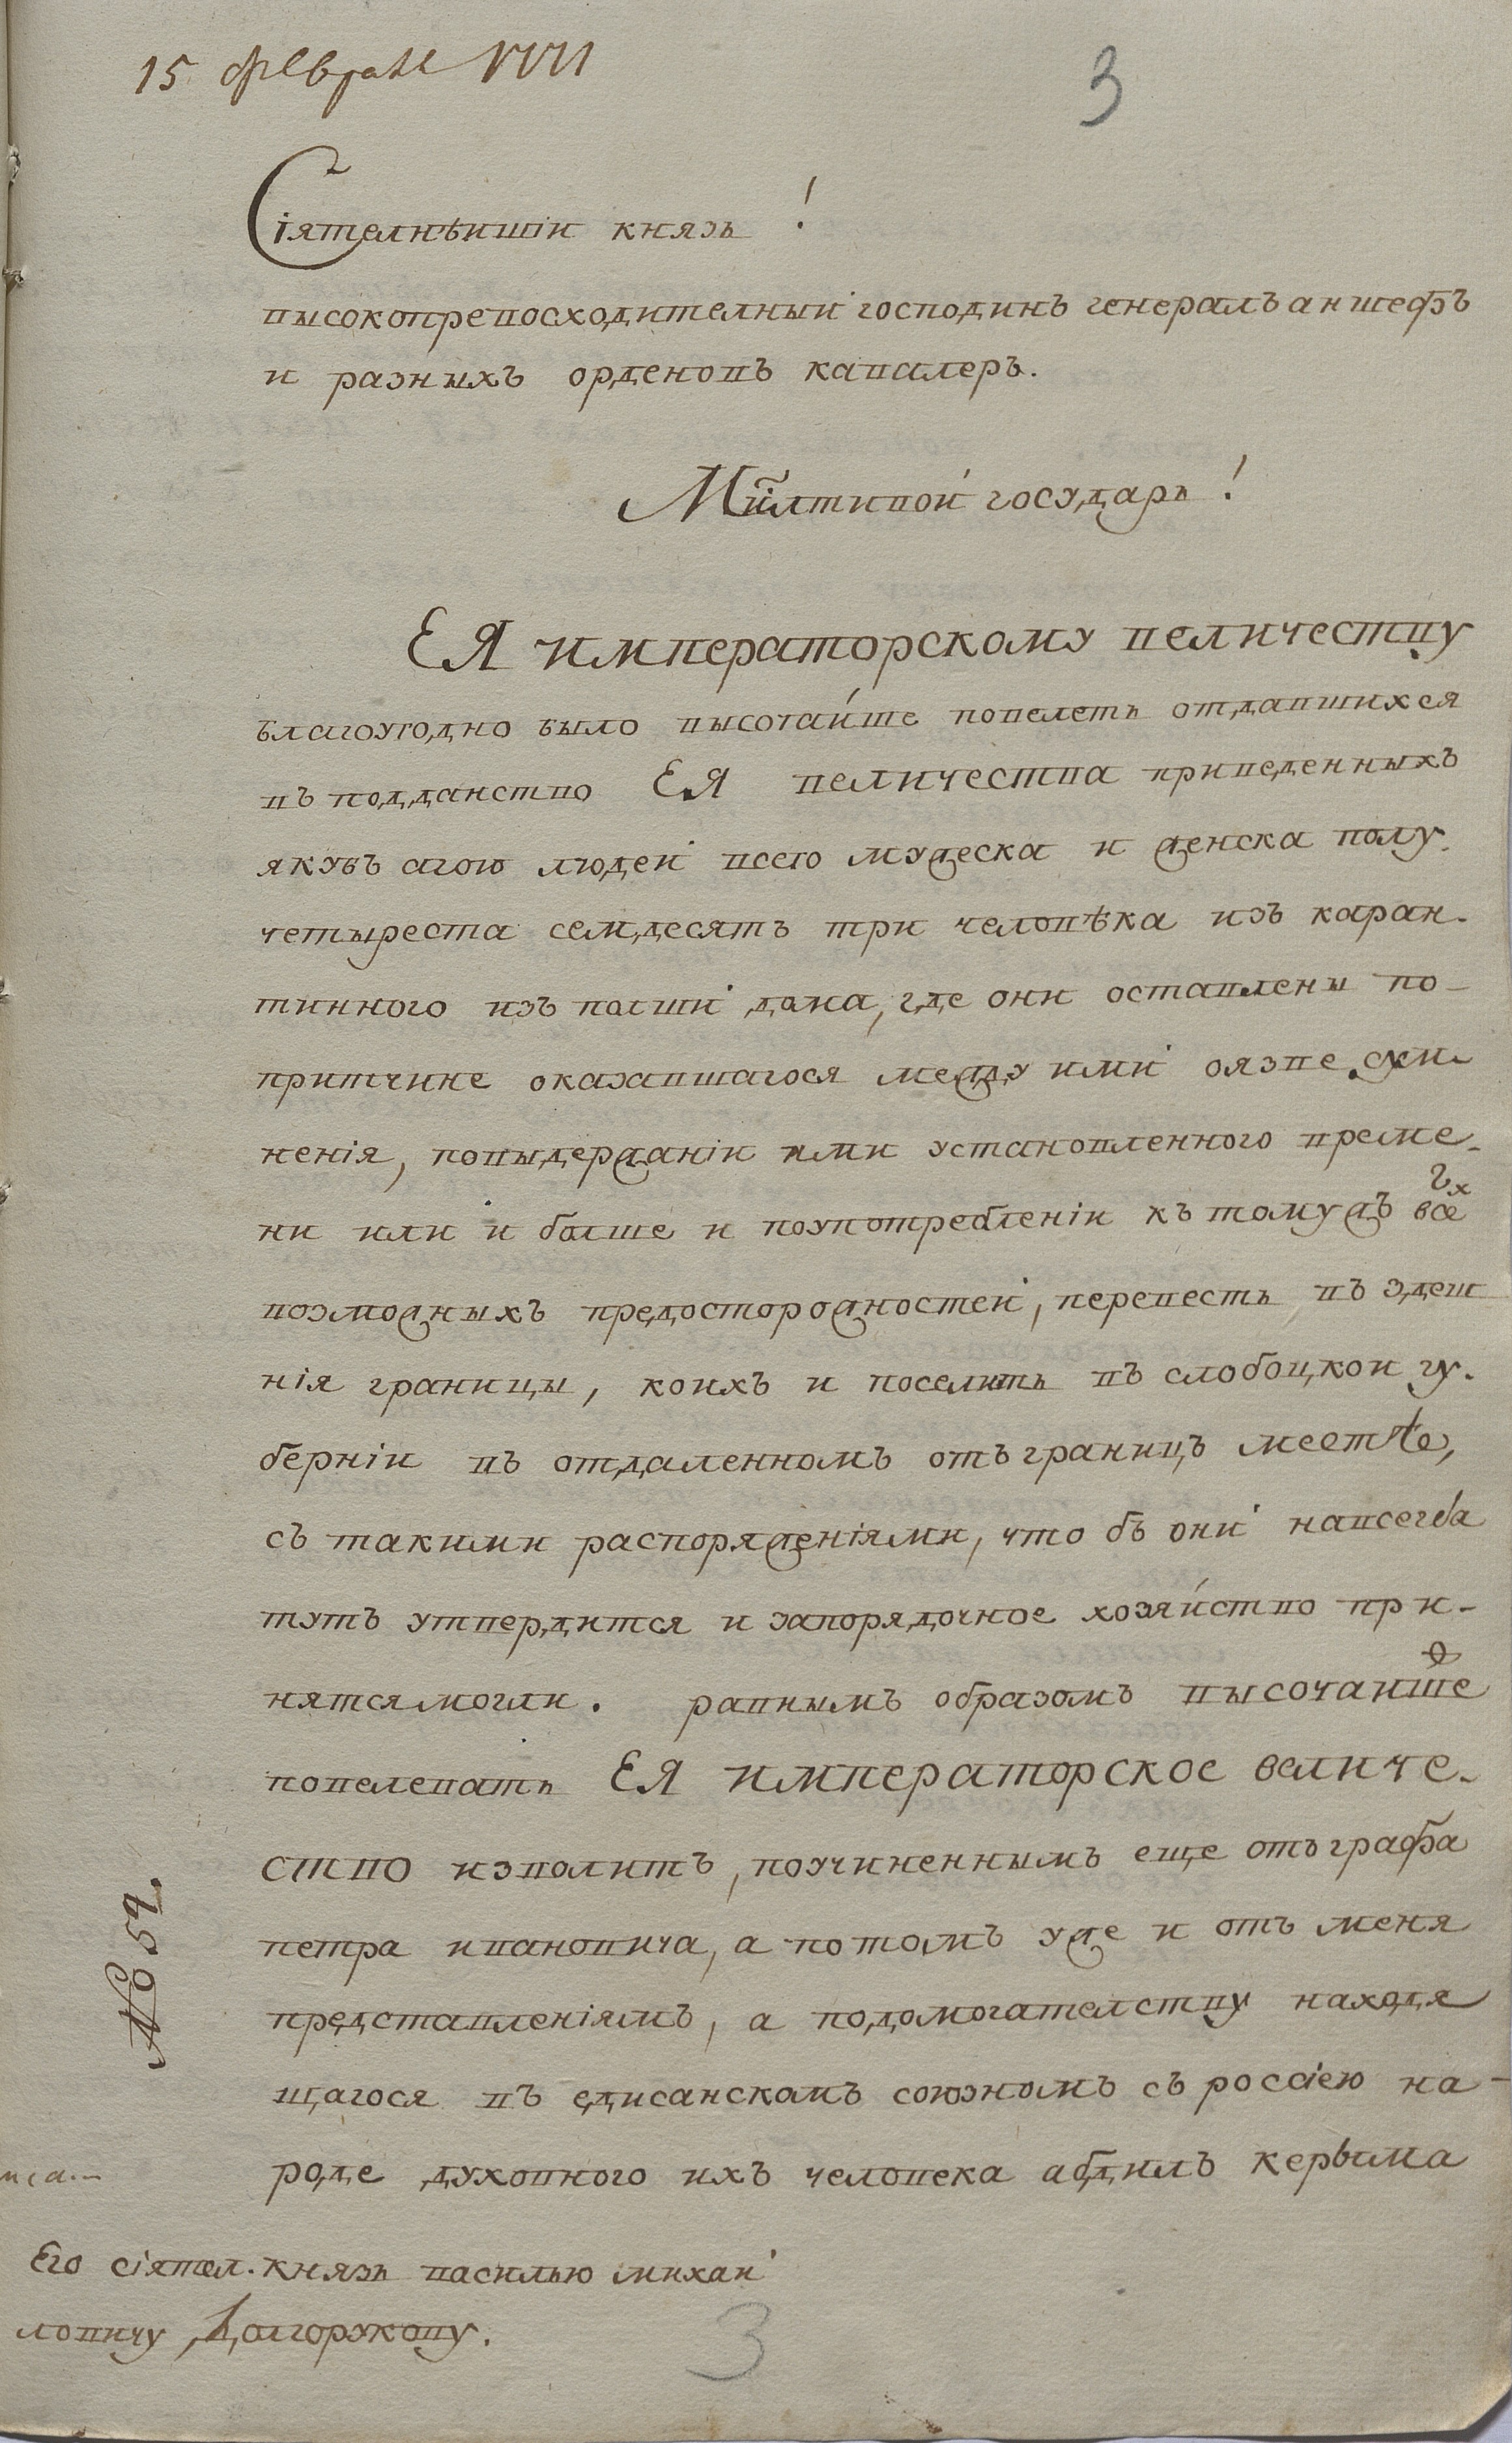 15 февраля 1771
3
Сіятелнѣишіи князь!
высокопревосходителныи господинъ генералъ аншефъ
и разныхъ орденовъ кавалеръ.
Млтивои государь!
ЕЯ императорскому величеству
благоугодно было высочаише повелеть отдавшихся
въ подданство ЕЯ величества приведенныхъ
якубъ агою людеи всего мужеска и женска полу
четыреста семдесятъ три человѣка изъ каран-
тинного изъ полши дома, где они оставлены по-
притчине оказавшагося между ими о язве сум-
ненія, повыдержаніи ими установленного време-
ни или и болше и поупотребленіи къ томужъ всехъ
возможныхъ предосторожностеи, перевесть въ здеш
нія границы, коихъ и поселить въ слобоцкои гу-
берніи въ отдаленномъ отъ границъ месте,
съ такими распоряженіями, что бъ они навсегда
тутъ утвердится и запорядочное хозяиство при-
нятся могли. равнымъ образомъ высочаише
повелевать ЕЯ императорское величе-
ство изволитъ, поучиненнымъ еще отъ графа
петра ивановича, а потомъ уже и отъ меня
представленіямъ, а подомогателству находя
щагося въ едисанскомъ союзномъ съ россіею на-
роде духовного ихъ человека абдилъ керьима
№ 54.
Его сіятел. князь василью михаи
ловичу Долгорукову.
3